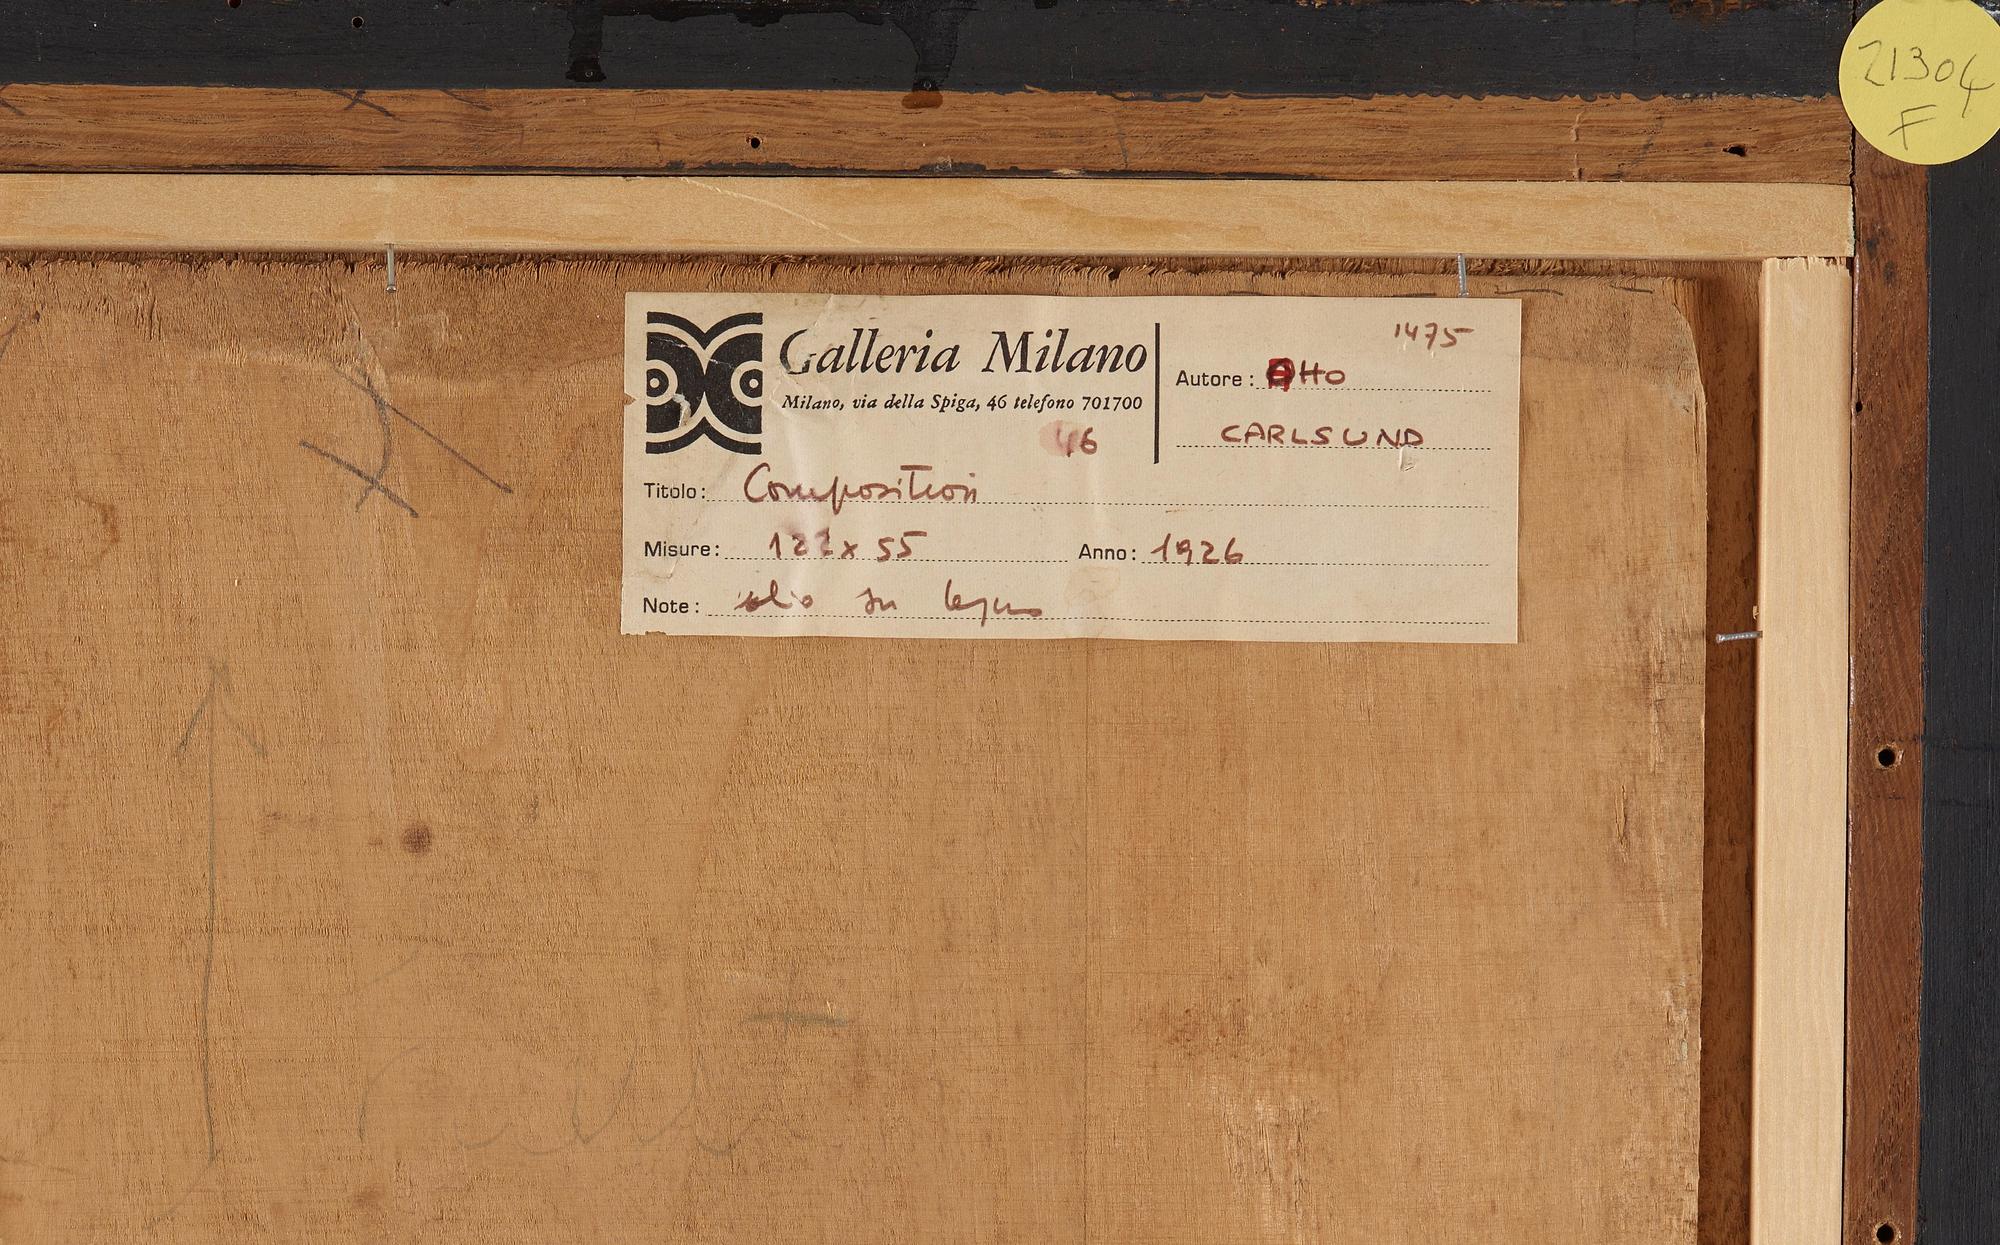 21304
F
Galleria Milano
Milano, via della Spiga, 46 telefono 701700
46
1475
Autore: Otto
CARLSUND
Titolo: Composition
Misure: 122x55 Anno: 1926
Note: olio su legno